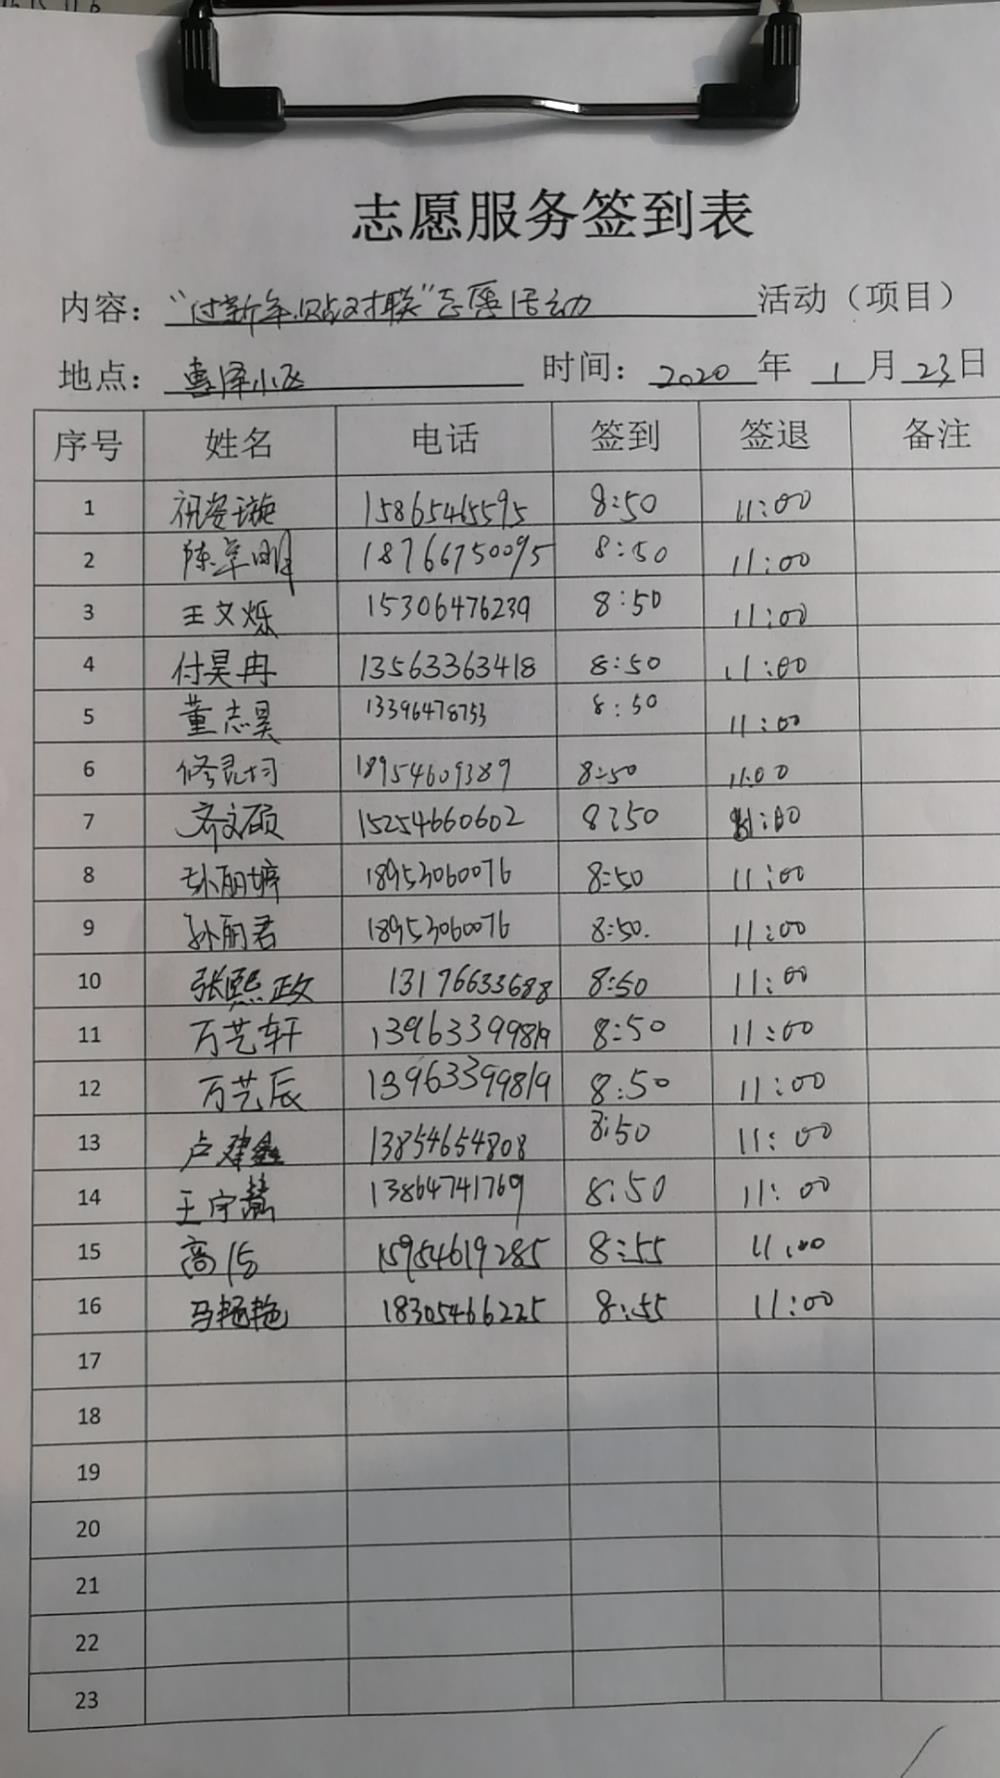 志愿服务签到表
内容：“过新年,贴对联”志愿活动 活动（项目）
地点：惠泽小区 时间：2020 年 1 月 23 日
序号 姓名 电话 签到 签退 备注
1 祝姿璇 15865465595 8:50 11:00
2 陈卓明 18766750095 8:50 11:00
3 王文烁 15306476239 8:50 11:00
4 付昊冉 13563363418 8:50 11:00
5 董志昊 13396478753 8:50 11:00
6 18954609389 8:50 11:00
7 齐文硕 15254660602 8:50 11:00
8 孙丽婷 18953060076 8:50 11:00
9 孙丽君 18953060076 8:50. 11:00
10 张熙政 13176633688 8:50 11:00
11 万艺轩 13963399819 8:50 11:00
12 万艺辰 13963399819 8:50 11:00
13 卢建鑫 13854654808 8:50 11:00
14 王宇慧 13864741769 8:50 11:00
15 15954619285 8:55 11:00
16 马艳艳 18305466225 8:55 11:00
17
18
19
20
21
22
23